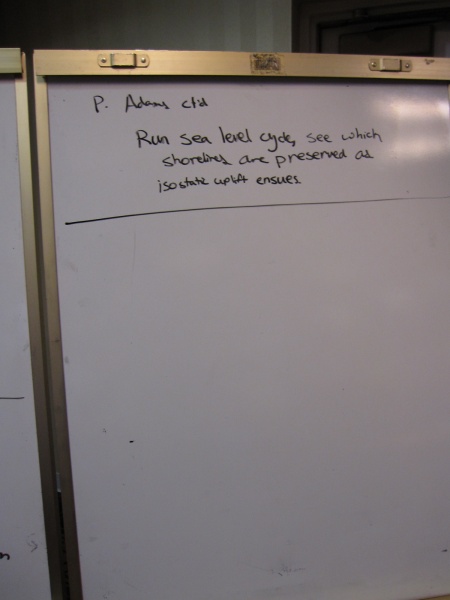 P. Adams ctd
Run sea level cycle, see which
shorelines are preserved as
isostatic uplift ensues.